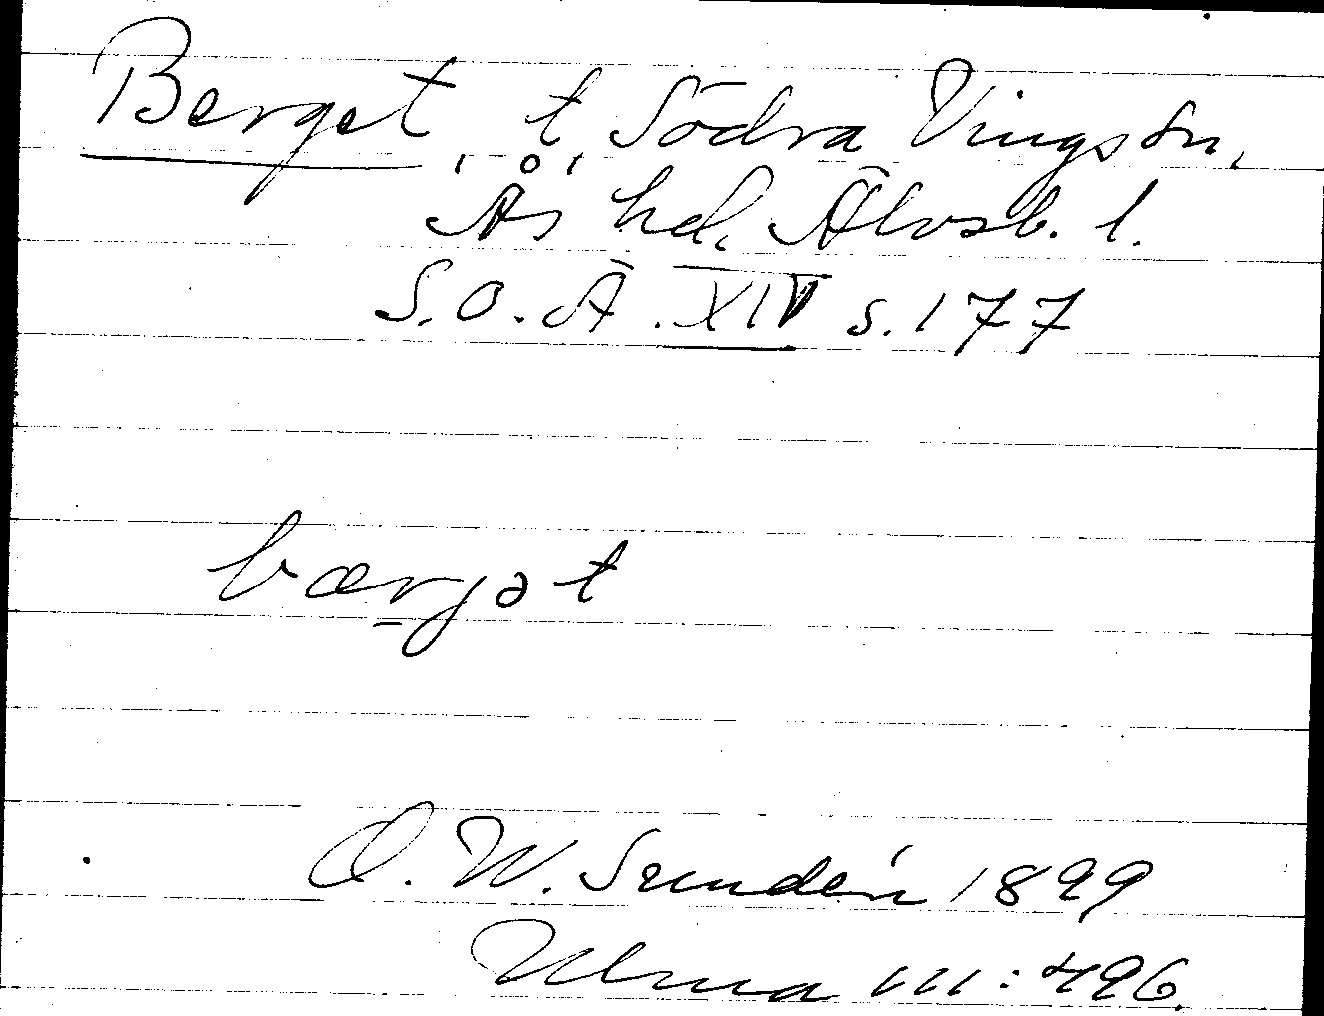 Berget, t, Södra Vings sn,
Ås hd, Älvsb. l.
S.O.Ä. XIV s. 177
bærjət
D. W. Sundén 1899
Ulma 111:496.